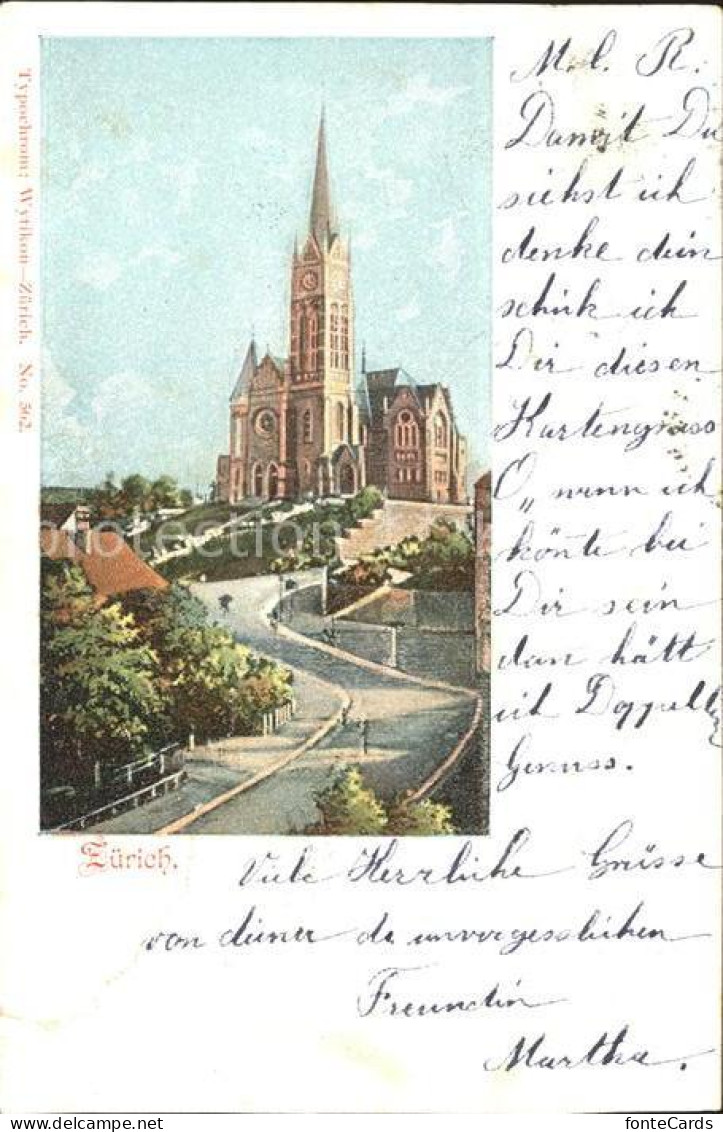 M. l. R.
Damit Du
siehst ich
denke dein
schik ich
Dir diesen
Kartengruss
O, wenn ich
könte bei
Dir sein
dan hätt
ich Doppelten
Genuss.
Viele Herzliche Grüsse
von deiner dr unvergesslichen
Freundin
Martha.
Typochrom: Wytikon—Zürich. No. 562.
Zürich.
protection
fonteCards